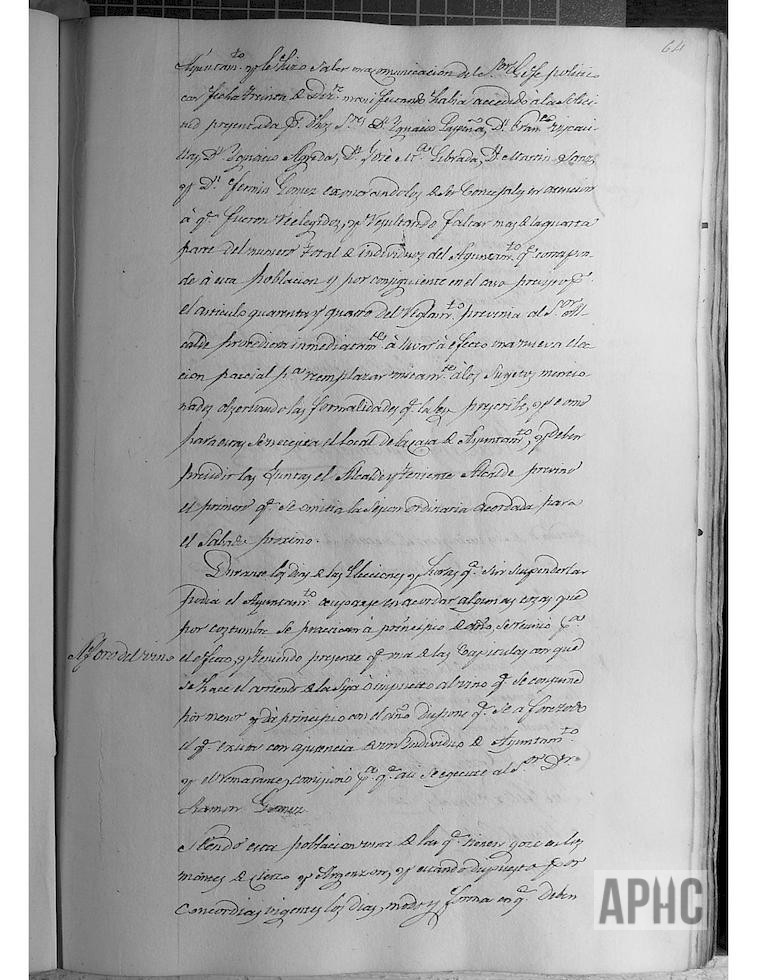 64
Ayuntam.to y le hizo saber una comunicacion del S.or Gefe politico
con fecha treinta de Dic.e manifestando habia accedido á la solici
tud presentada p.r dhos S.res D.n Ygnacio D.n Fran.co
D.n Ygnacio D.n José M.a Librada, D.n Martin Sanz,
y D.n Fermin Gomez exonerandolos de ser Concejales en atencion
á q.e fueron reelegidos, y resultando faltar mas de la quarta
parte del numero total de individuos del Ayuntam.to q.e correspon
de á esta poblacion y por consiguiente en el caso previsto p.r
el articulo quarenta y quatro del Reglam.to prevenia al S.or Al
calde procediera inmediatam.te á llevar á efecto una nueva elec
cion parcial p.a reemplazar unicam.te á los Sugetos mencio
nados observando las formalidades q.e la ley prescribe, y como
para estas se necesita el local de la casa de Ayuntam.to, y deben
presidir las Juntas el Alcalde y teniente Alcalde previno
el primero q.e se omitia la sesion ordinaria acordada para
el Sabado proximo.
Durante los dias de las Elecciones y horas q.e sin suspenderlas
podia el Ayuntam.to ocuparse en acordar algunas cosas que
por costumbre se practican á principio de año, se reunió p.a
Aforo del vino
el efecto, y teniendo presente q.e una de las Capitulas con que
se hace el arriendo de la Sisa ó impuesto al vino q.e se consume
por menor y dá principio con el año dispone q.e se aforo todo
el q.e exista con asistencia de un Individuo de Ayuntam.to
y el rematante, comisionó p.a q.e asi se egecute al S.or D.n
Ramon Gomez
Siendo esta poblacion una de las q.e tienen goce en los
montes de y y estando dispuesto por
Concordias vigentes los dias, modo y forma en q.e deben
APHC